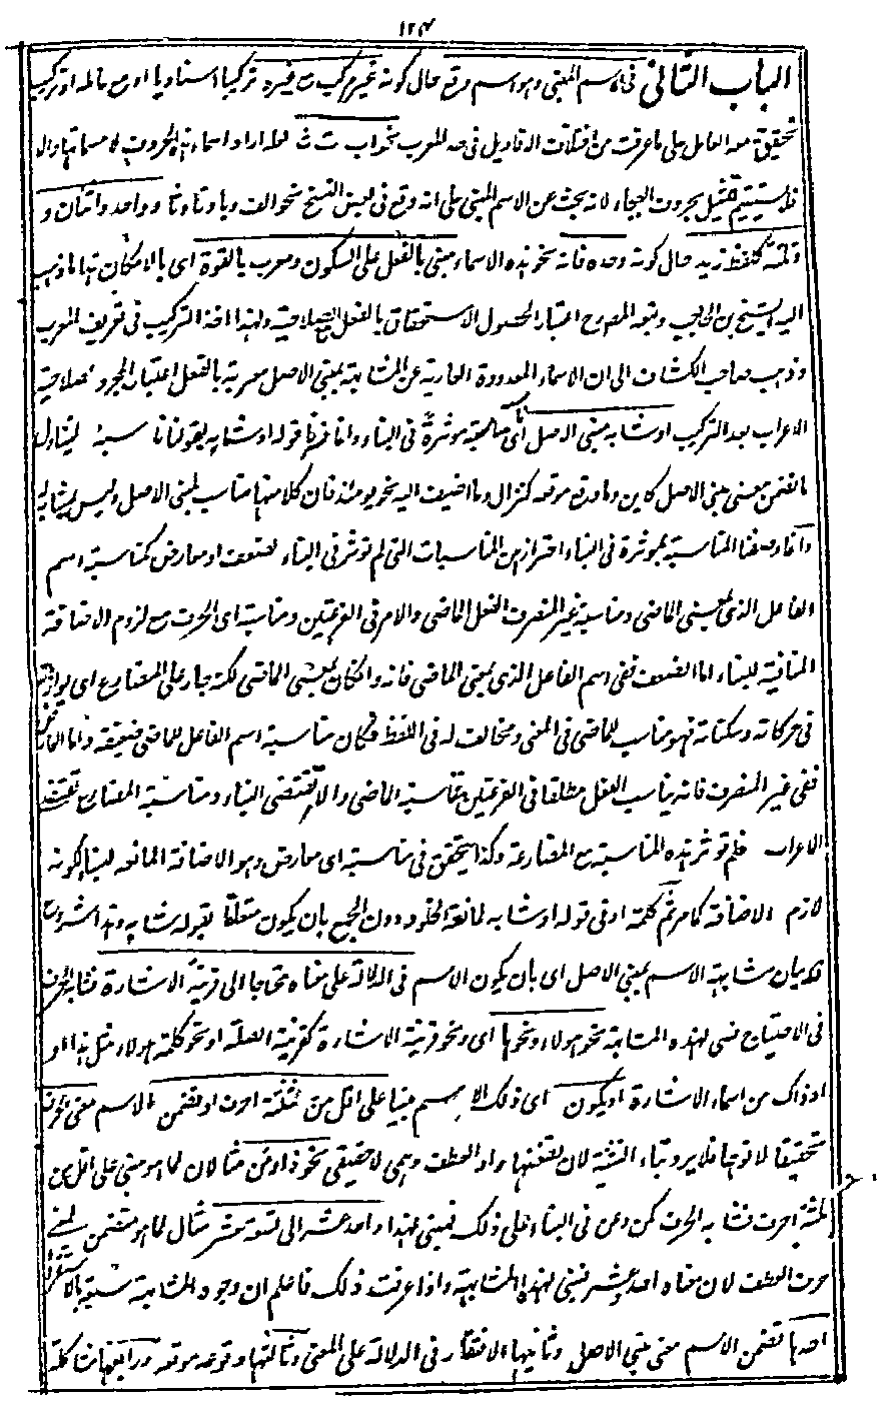 ١٢٤
الباب الثانی فی الاسم المبنی وهو اسم وقع حال کونه غیر مرکب مع غیره ترکیبا اسنادیا او مع عامله او ترکیب
تحقق معه العامل علی ما عرفت من اختلاف الاقاویل فی حد المعرب نحو اب ت ث لعله اراد اسماء هذه الحروف لا مسمیاتها والا
فلا یستقیم تمثیل بحروف الهجاء لانه یبحث عن الاسم المبنی علی انه وقع فی بعض النسخ نحو الف و با و تا و ثا و واحد واثنان و
وثلثة کلفظ زید حال کونه وحده فانه نحو هذه الاسماء مبنی بالفعل علی السکون ومعرب بالقوة ای بالامکان هذا ما ذهب
الیه الشیخ بن الحاجب وتبعه المصرح اعتبار الحصول الاستحقاق بالفعل مع الصلاحیة ولهذا اخذ الترکیب فی تعریف المعرب
وذهب صاحب الکشاف الی ان الاسماء المعدودة العاریة عن المشابهة بمبنی الاصل معربة بالفعل اعتبار المجرد صلاحیة
الاعراب بعد الترکیب او شابه مبنی الاصل ای مناسبة موثرة فی البناء وانما فسرنا قوله او شابه بقولنا ناسبه لیتناول
ما تضمن معنی مبنی الاصل کاین وما وقع موقعه کنزال وما اضیف الیه نحو یومئذ فان کلا منها مناسب لمبنی الاصل ولیس بمشابه
وانما وصفنا المناسبة بموثرة فی البناء احترازا من المناسبات التی لم توثر فی البناء لضعف او معارض کمناسبة اسم
الفاعل الذی بمعنی الماضی ومناسبة غیر المنصرف الفعل الماضی والامر فی الفرعیتین ومناسبة ای الحرف مع لزوم الاضافة
المنافیة للبناء اما الضعف ففی اسم الفاعل الذی بمعنی الماضی فانه وان کان بمعنی الماضی لکنه جار علی المضارع ای یوازنه
فی حرکاته وسکناته فهو مناسب للماضی فی المعنی ومخالف له فی اللفظ فکان مناسبة اسم الفاعل للماضی ضعیفة واما المعارض
ففی غیر المنصرف فانه یناسب الفعل مطلقا فی الفرعیتین فمناسبة الماضی والامر تقتضی البناء ومناسبة المضارع تقتضی
الاعراب فلم توثر هذه المناسبة مع المضارعة وکذا یتحقق فی مناسبة ای معارض وهو الاضافة المانعه للبناء لکونه
لازم الاضافة کما مر ثم کلمة او فی قوله او شابه لمانعة الخلو دون الجمع بان یکون متعلقا بقوله شابه وهذا شروع
فی بیان مشابهة الاسم بمبنی الاصل ای بان یکون الاسم فی الدلالة علی معناه محتاجا الی قرینة الاشارة فشابه الحرف
فی الاحتیاج فبنی لهذه المشابهة نحو هولاء ونحوها ای ونحو قرینة الاشارة کقرینة الصلة او نحو کلمة هولاء مثل هذا او
او ذاک من اسماء الاشارة او یکون ای ذلک الاسم مبنیا علی اقل من ثلثة احرف او تضمن الاسم معنی الحرف
تحقیقا لا توهما فلا یرد بناء التثنیة لان تضمنها واو العطف وهمی لا حقیقی نحو ذا ومن مثالان لما هو مبنی علی اقل من
ثلثة احرف فشابه الحرف کمن وعن فی البناء علی ذلک فبنی لهذا واحد عشر الی تسعة عشر مثال لما هو متضمن لمعنی
حرف العطف لان معناه احد وعشر فبنی لهذه المشابهة واذا عرفت ذلک فاعلم ان وجود المشابهة سبعة بالاستقراء
احدها تضمن الاسم معنی مبنی الاصل وثانیها الافتقار فی الدلالة علی المعنی وثالثها وقوعه موقعه ورابعها مشاکلة